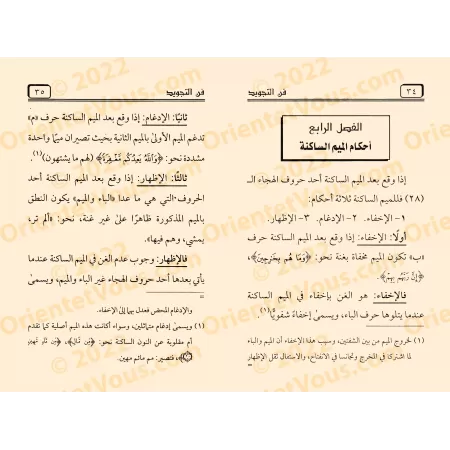 فن التجويد
٣٤
الفصل الرابع
أحكام الميم الساكنة
إذا وقع بعد الميم الساكنة أحد حروف الهجاء الـ
(٢٨) فللميم الساكنة ثلاثة أحكام:
١- الإخفاء. ٢- الإدغام. ٣- الإظهار.
أولًا: الإخفاء: إذا وقع بعد الميم الساكنة حرف
«ب» تكون الميم مخفاة بغنة نحو: ﴿وَمَا هُم بِخَٰرِجِينَ﴾،
﴿إِنَّ رَبَّهُم بِهِمْ﴾.
فالإخفاء: هو الغن بإخفاء في الميم الساكنة
عندما يتلوها حرف الباء، ويسمى إخفاءً شفويًا(١).
(١) لخروج الميم من بين الشفتين، وسبب هذا الإخفاء أن الميم والباء
لما اشتركا في المخرج وتجانسا في الانفتاح، والاستفال ثقل الإظهار
فن التجويد
٣٥
ثانيًا: الإدغام: إذا وقع بعد الميم الساكنة حرف «م»
تدغم الميم الأولى بالميم الثانية بحيث تصيران ميمًا واحدة
مشددة نحو: ﴿وَاللَّهُ يَعِدُكُم مَّغْفِرَةً﴾ (لهم ما يشتهون)(١).
ثالثًا: الإظهار: إذا وقع بعد الميم الساكنة أحد
الحروف التي هي ما عدا «الباء والميم» يكون النطق
بالميم المذكورة ظاهرًا على غير غنة، نحو: «ألم تر،
يمشي، وهم فيها».
فالإظهار: وجوب عدم الغن في الميم الساكنة عندما
يأتي بعدها أحد حروف الهجاء غير الباء والميم، ويسمى
والإدغام المحض فعدل بها إلى الإخفاء.
(١) ويسمى إدغام متماثلين، وسواء أكانت هذه الميم أصلية كما تقدم
أم مقلوبة عن النون الساكنة نحو: ﴿مِّن مَّالٍ﴾،
فتصير: مم مائم مهين.
© 2022
OrientatVous.com